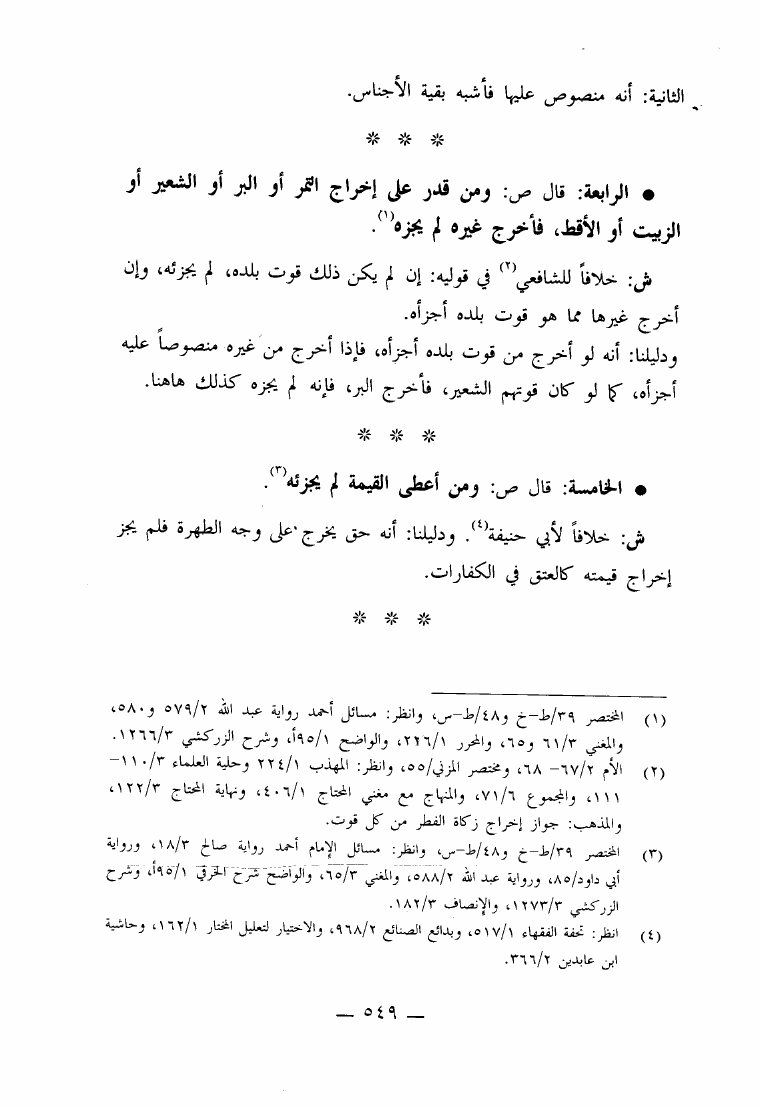 الثانية: أنه منصوص عليها فأشبه بقية الأجناس.
* * *
● الرابعة: قال ص: ومن قدر على إخراج التمر أو البر أو الشعير أو
الزبيت أو الأقط، فأخرج غيره لم يجزه(١).
ش: خلافاً للشافعي(٢) في قوليه: إن لم يكن ذلك قوت بلده، لم يجزئه، وإن
أخرج غيرها مما هو قوت بلده أجزأه.
ودليلنا: أنه لو أخرج من قوت بلده أجزأه، فإذا أخرج من غيره منصوصاً عليه
أجزأه، كما لو كان قوتهم الشعير، فأخرج البر، فإنه لم يجزه كذلك هاهنا.
* * *
● الخامسة: قال ص: ومن أعطى القيمة لم يجزئه(٣).
ش: خلافاً لأبي حنيفة(٤). ودليلنا: أنه حق يخرج على وجه الطهرة فلم يجز
إخراج قيمته كالعتق في الكفارات.
* * *
(١) المختصر ٣٩/ط-خ و٤٨/ط-س، وانظر: مسائل أحمد رواية عبد الله ٥٧٩/٢ و٥٨٠،
والمغني ٦١/٣ و٦٥، والمحرر ٢٢٦/١، والواضح ٩٥/١أ، وشرح الزركشي ١٢٦٦/٣.
(٢) الأم ٦٧/٢- ٦٨، ومختصر المزني/٥٥، وانظر: المهذب ٢٢٤/١ وحلية العلماء ١١٠/٣-
١١١، والمجموع ٧١/٦، والمنهاج مع مغني المحتاج ٤٠٦/١، ونهاية المحتاج ١٢٢/٣،
والمذهب: جواز إخراج زكاة الفطر من كل قوت.
(٣) المختصر ٣٩/ط-خ و٤٨/ط-س، وانظر: مسائل الإمام أحمد رواية صالح ١٨/٣، ورواية
أبي داود/٨٥، ورواية عبد الله ٥٨٨/٢، والمغني ٦٥/٣، والواضح شرح الخرقي ٩٥/١أ، وشرح
الزركشي ١٢٧٣/٣، والإنصاف ١٨٢/٣.
(٤) انظر: تحفة الفقهاء ٥١٧/١، وبدائع الصنائع ٩٦٨/٢، والاختيار لتعليل المختار ١٦٢/١، وحاشية
ابن عابدين ٣٦٦/٢.
— ٥٤٩ —